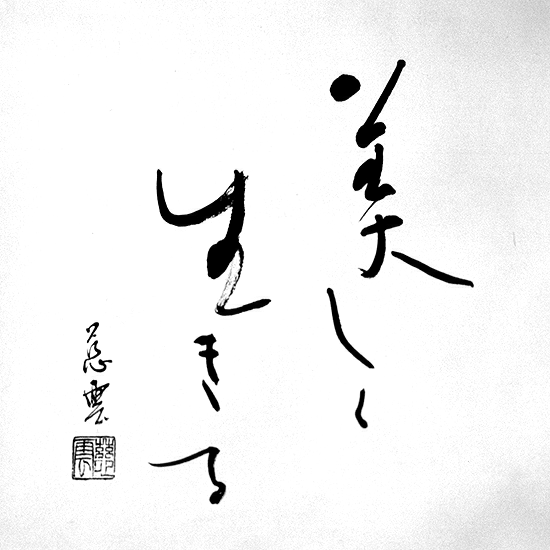 美しく
生きる
慈雲